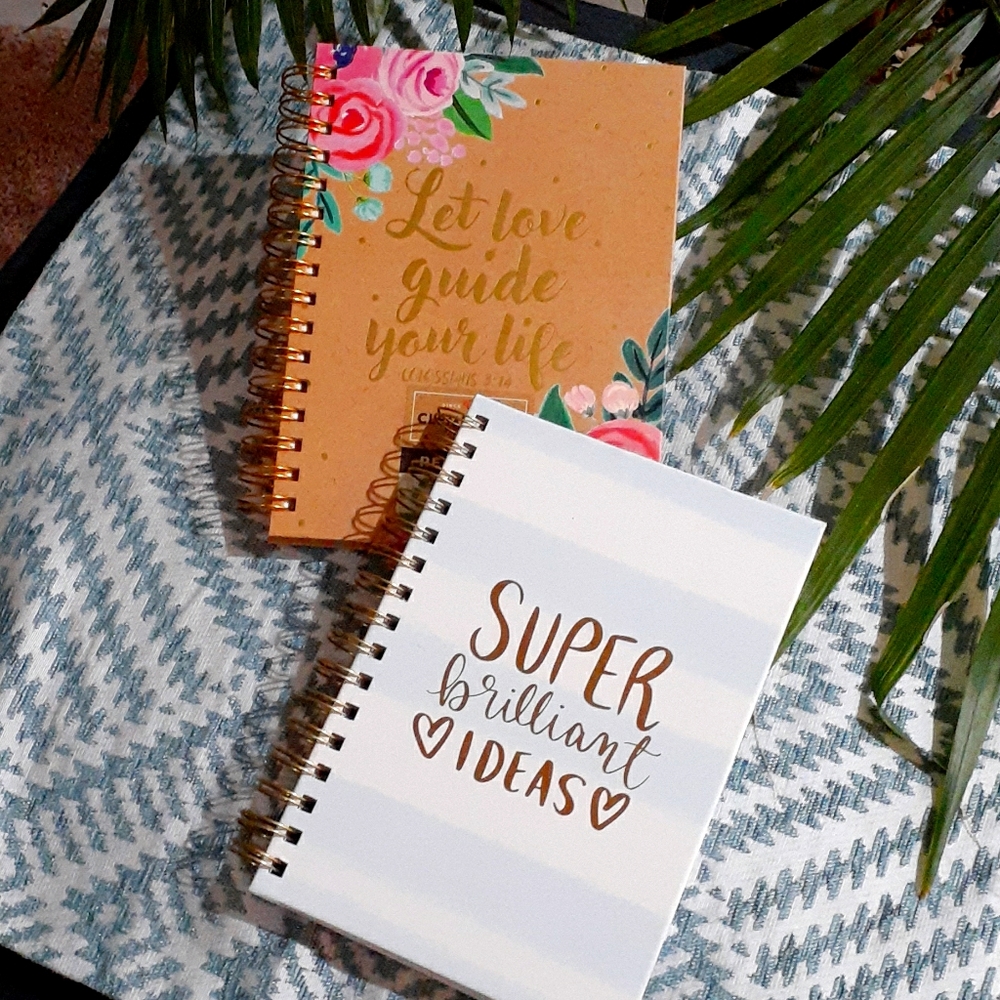 Let love
guide
your life
COLOSSIANS 3:14
SUPER
brilliant
IDEAS